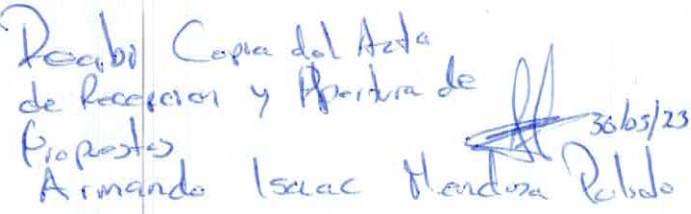 Recibi Copia del Acta
de Recepcion y Apertura de
Propuestas 30/05/23
Armando Isaac Mendoza